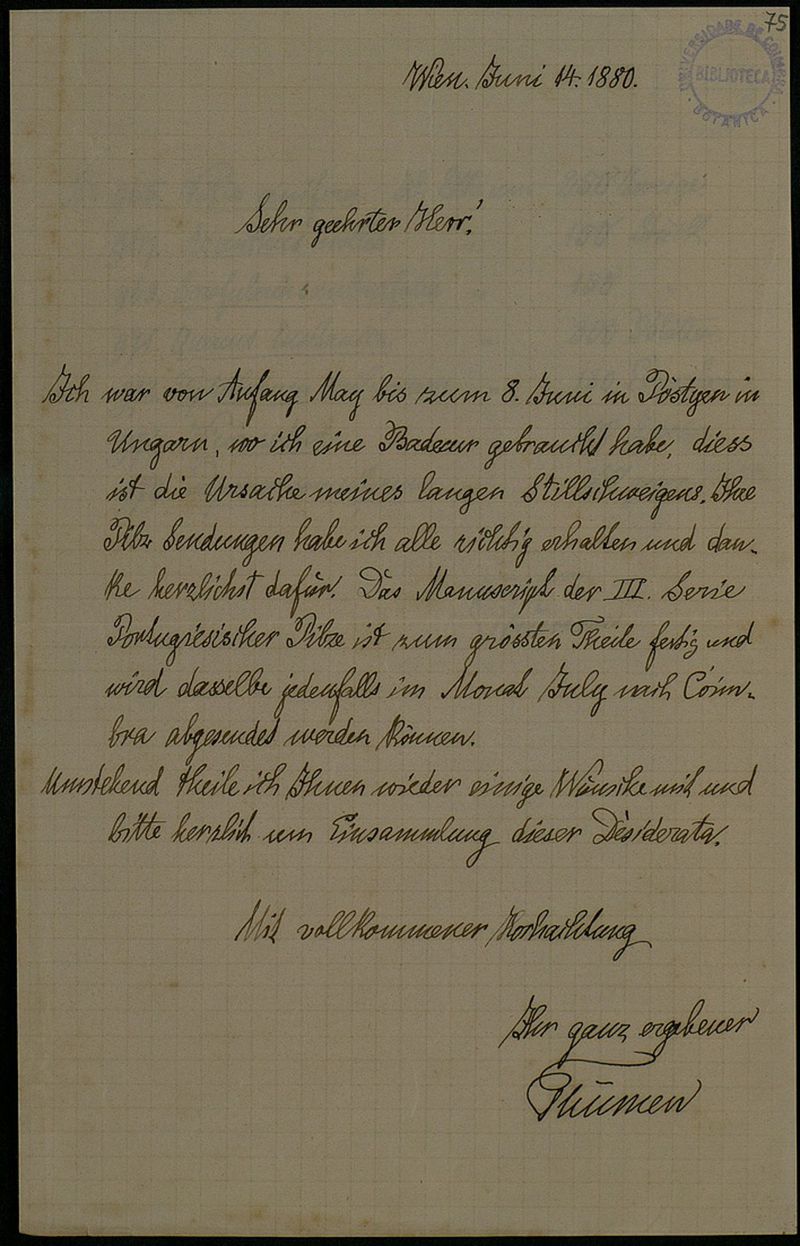 75
UNIVERSIDADE DE COIMBRA
BIBLIOTECA
BOTANICA
Wien. Juni 14. 1880.
Sehr geehrter Herr!
Ich war von Anfang May bis zum 8. Juni in Pöstyen in
Ungarn, wo ich eine Badecur gebraucht habe, diess
ist die Ursache meines langen Stillschweigens. Ihre
Pilz Sendungen habe ich alle richtig erhalten und dan-
ke herzlichst dafür. Das Manuscript der III. Serie
Portugiesischer Pilze ist zum grössten Theile fertig und
wird dasselbe jedenfalls im Monat July nach Coim-
bra abgesendet werden können.
Umstehend theile ich Ihnen wieder einige Wünsche mit und
bitte herzlich um Einsammlung dieser Desiderata.
Mit vollkommener Hochachtung
Ihr ganz ergebener
Thümen